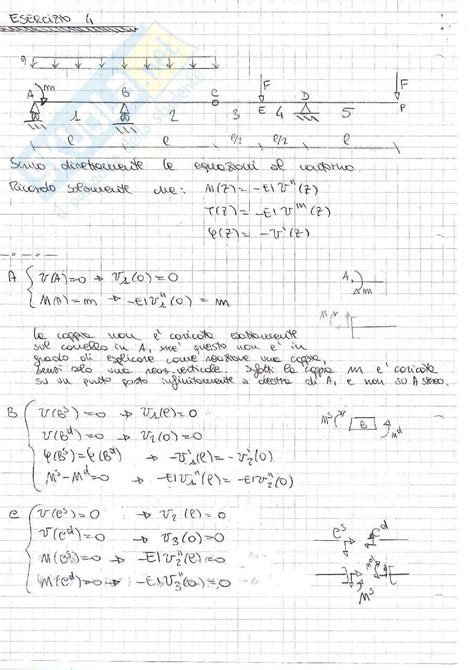 ESERCIZIO 4
q
A m B C F E D F P
1 2 3 4 5
l l l/2 l/2 l
Scrivo direttamente le equazioni al contorno.
Ricordo solamente che: M(z) = -EI v''(z)
T(z) = -EI v'''(z)
φ(z) = -v'(z)
A { v(A)=0 → v₁(0)=0
M(A)=m → -EI v₁''(0) = m
A m
M
la coppia non è caricata esattamente
sul carrello in A, perché questo non è in
grado di esplicare come reazione una coppia,
bensì solo una reaz. verticale. Infatti la coppia m è caricata
su un punto posto infinitamente a destra di A, e non su A stesso.
B { v(Bˢ)=0 → v₁(l)=0
v(Bᵈ)=0 → v₂(0)=0
φ(Bˢ)=φ(Bᵈ) → -v₁'(l) = -v₂'(0)
Mˢ-Mᵈ=0 → -EI v₁''(l) = -EI v₂''(0)
Mˢ B Mᵈ
C { v(Cˢ)=0 → v₂(l)=0
v(Cᵈ)=0 → v₃(0)=0
M(Cˢ)=0 → -EI v₂''(l)=0
M(Cᵈ)=0 → -EI v₃''(0)=0
Cˢ Cᵈ
Mˢ